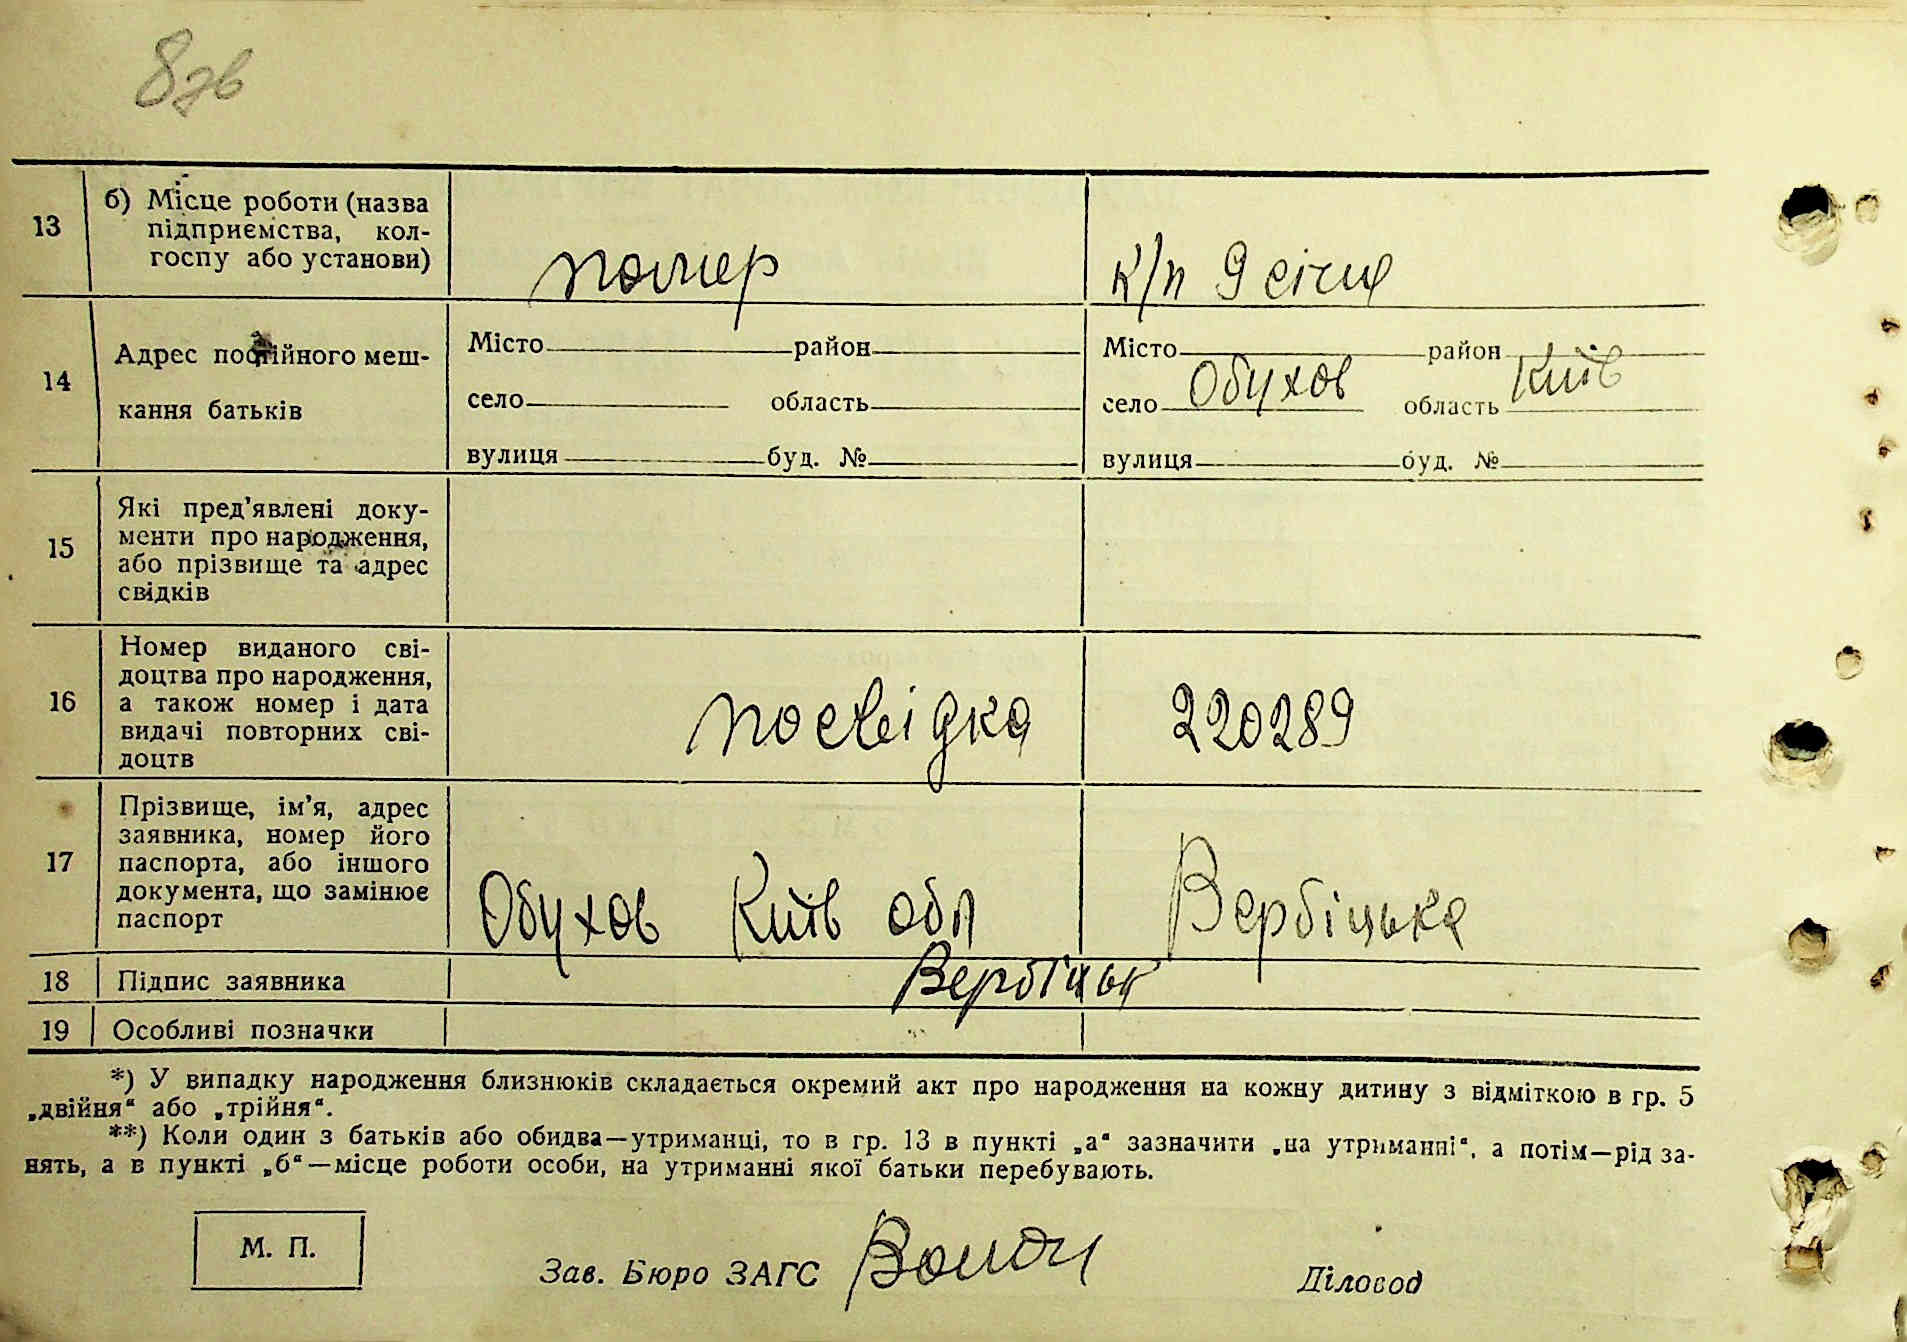 8зв
13 б) Місце роботи (назва
підприємства, кол-
госпу або установи)
помер к/п 9 січня
14 Адрес постійного меш-
кання батьків
Місто район
село область
вулиця буд. №
Місто район
село Обухов область Київ
вулиця буд. №
15 Які пред'явлені доку-
менти про народження,
або прізвище та адрес
свідків
16 Номер виданого сві-
доцтва про народження,
а також номер і дата
видачі повторних сві-
доцтв
посвідка 220289
17 Прізвище, ім'я, адрес
заявника, номер його
паспорта, або іншого
документа, що замінює
паспорт
Обухов Київ обл Вербіцька
18 Підпис заявника Вербіцьк
19 Особливі позначки
*) У випадку народження близнюків складається окремий акт про народження на кожну дитину з відміткою в гр. 5
„двійня“ або „трійня“.
**) Коли один з батьків або обидва—утриманці, то в гр. 13 в пункті „а“ зазначити „на утриманні“, а потім—рід за-
нять, а в пункті „б“—місце роботи особи, на утриманні якої батьки перебувають.
М. П.
Зав. Бюро ЗАГС
Діловод